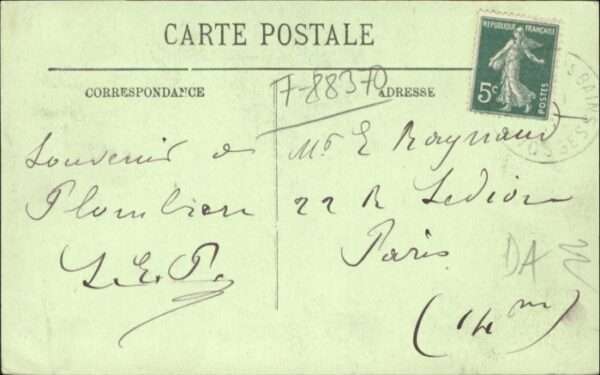 CARTE POSTALE
CORRESPONDANCE
ADRESSE
7-88370
REPUBLIQUE FRANÇAISE
5c
POSTES
Souvenir de
Plombières
L.E.P.
Mr E Raynaud
22 R Ledion
Paris
(14me)
DA